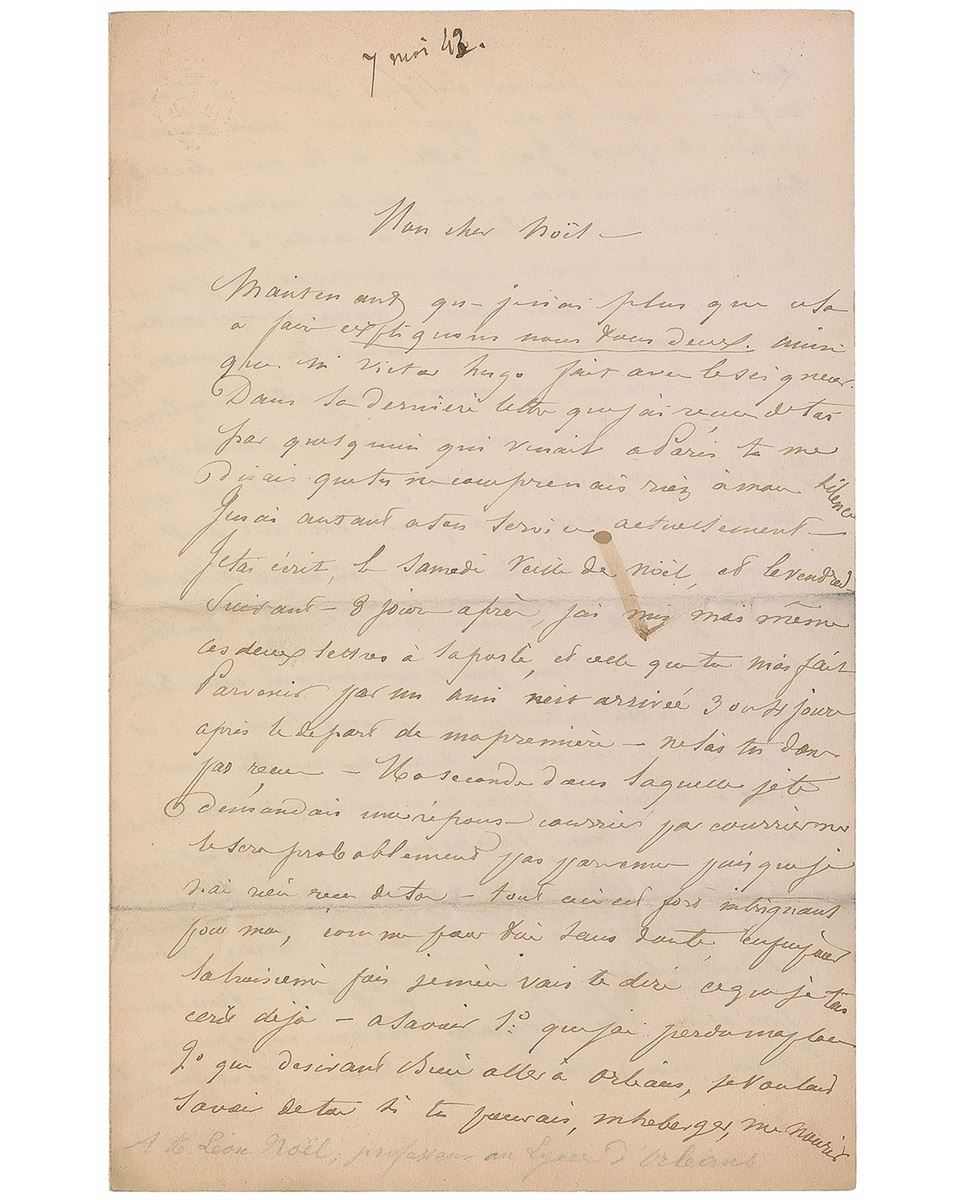 7 mai 43.
Mon cher Noël —
Maintenant que je n'ai plus que cela
à faire expliquons nous tous deux. ainsi
que Victor hugo fait avec le seigneur.
Dans la dernière lettre que j'ai recue de toi
par quelqu'un qui venait a Paris tu me
disais que tu ne comprenais rien à mon silence
J'en ai autant a ton service actuellement —
Je t'ai écrit, le samedi veille de noël, et le vendredi
suivant — 8 jours après, j'ai mis moi même
ces deux lettres à la poste, et celle que tu m'as fait
Parvenir par un ami n'est arrivée 3 ou 4 jours
après le départ de ma première — ne l'as tu donc
pas recue — Ma seconde dans laquelle je te
demandais une réponse courrier par courrier ne
te sera probablement pas parvenue puisque je
n'ai rien recu de toi — tout ceci est fort intrigant
pour moi, comme pour toi sans doute, enfin pour
la troisieme fois je m'en vais te dire ce que je t'ai
écrit déjà — a savoir 1o. que j'ai perdu ma place
2o que desirant bien aller à orléans, je voulais
savoir de toi si tu pouvais, m'heberger, me nourir
A M. Léon Noël, professeur au Lycée d'Orléans